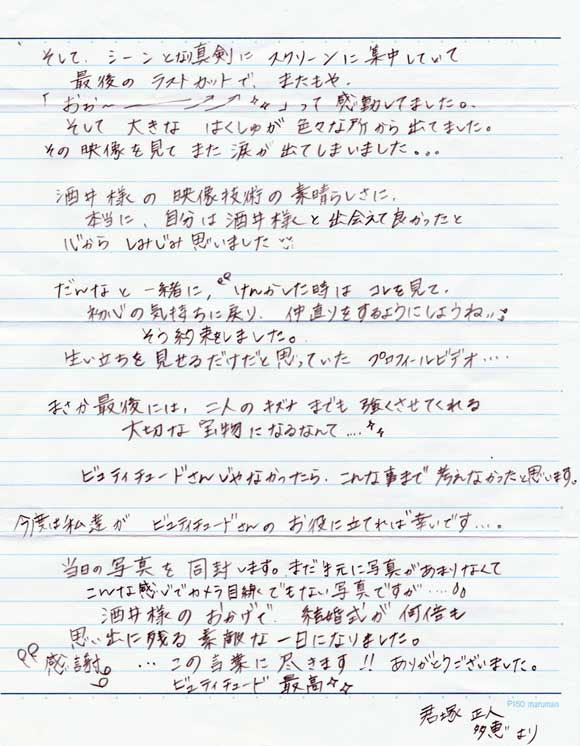 そして、シーンとなり真剣に スクリーンに集中していて
最後の ラストカットで、またもや、
「おぉ〜 」って 感動してました。
そして 大きな はくしゅが 色々な所から 出てました。
その映像を見て また 涙が 出てしまいました。。。
酒井様の 映像技術の 素晴らしさに、
本当に、自分は 酒井様と 出会えて 良かったと
心から しみじみ 思いました
だんなと 一緒に、けんかした時は コレを見て、
初心の気持ちに戻り、仲直りをするようにしようね
そう約束をしました。
生い立ちを 見せるだけだと 思っていた プロフィールビデオ‥‥
まさか最後には、二人の キズナ までも 強くさせてくれる
大切な 宝物に なるなんて‥‥
ビュティチュードさんじゃなかったら、こんな事まで 考えなかったと思います。
今度は私達が ビュティチュードさんの お役に立てれば幸いです…。
当日の写真を 同封します。まだ手元に写真があまりなくて
こんな感じでカメラ目線でもない写真ですが‥‥
酒井様の おかげで、結婚式が 何倍も
思い出に残る 素敵な 一日になりました。
感謝。… この言葉に 尽きます!! ありがとうございました。
ビュティチュード 最高
P150 maruman
君塚 正人
多恵 より